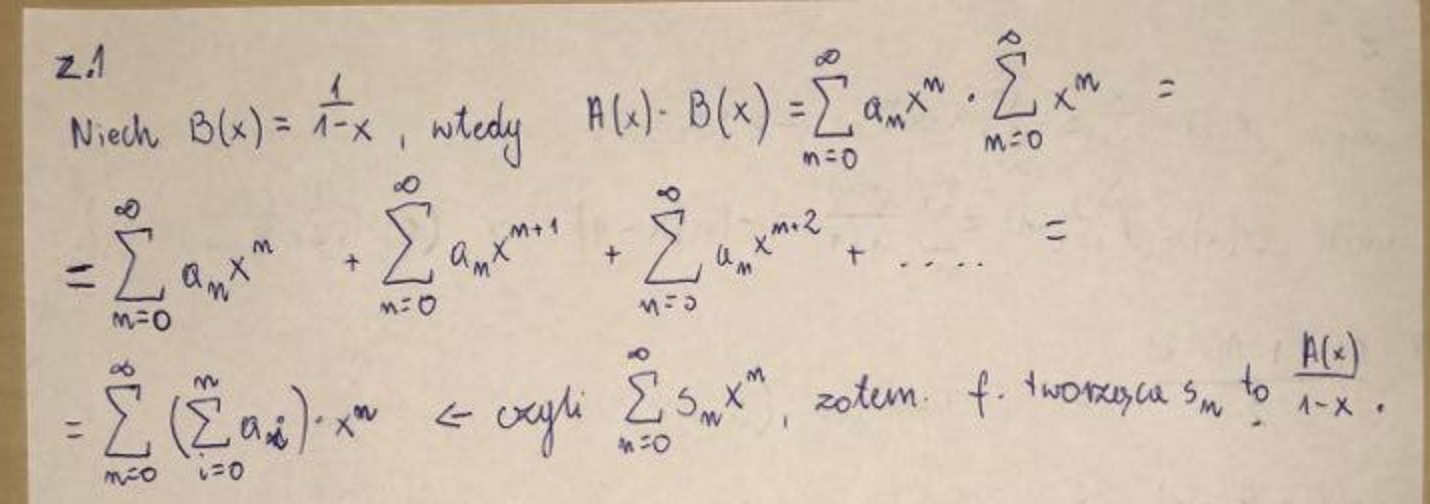 z.1
Niech B(x) = \frac{1}{1-x}, wtedy A(x) · B(x) = \sum_{n=0}^{∞} a_n x^n · \sum_{n=0}^{∞} x^n =
= \sum_{n=0}^{∞} a_n x^n + \sum_{n=0}^{∞} a_n x^{n+1} + \sum_{n=0}^{∞} a_n x^{n+2} + .... =
= \sum_{n=0}^{∞} (\sum_{i=0}^{n} a_i) · x^n ← czyli \sum_{n=0}^{∞} s_n x^n, zatem. f. tworząca s_n to \frac{A(x)}{1-x}.